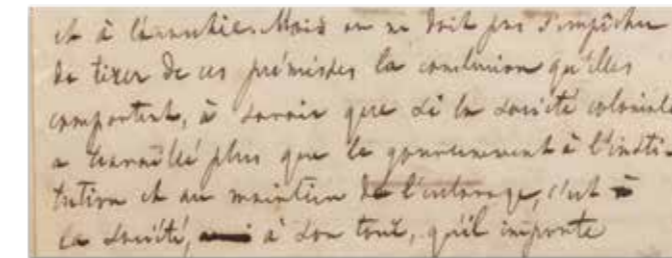 et à l'anarchie. Mais on ne doit pas s'empêcher
de tirer de ces prémisses la conclusion qu'elles
comportent, à savoir que si la société coloniale
a travaillé plus que le gouvernement à l'insti-
tution et au maintien de l'esclavage, c'est à
la société, à son tout, qu'il importe